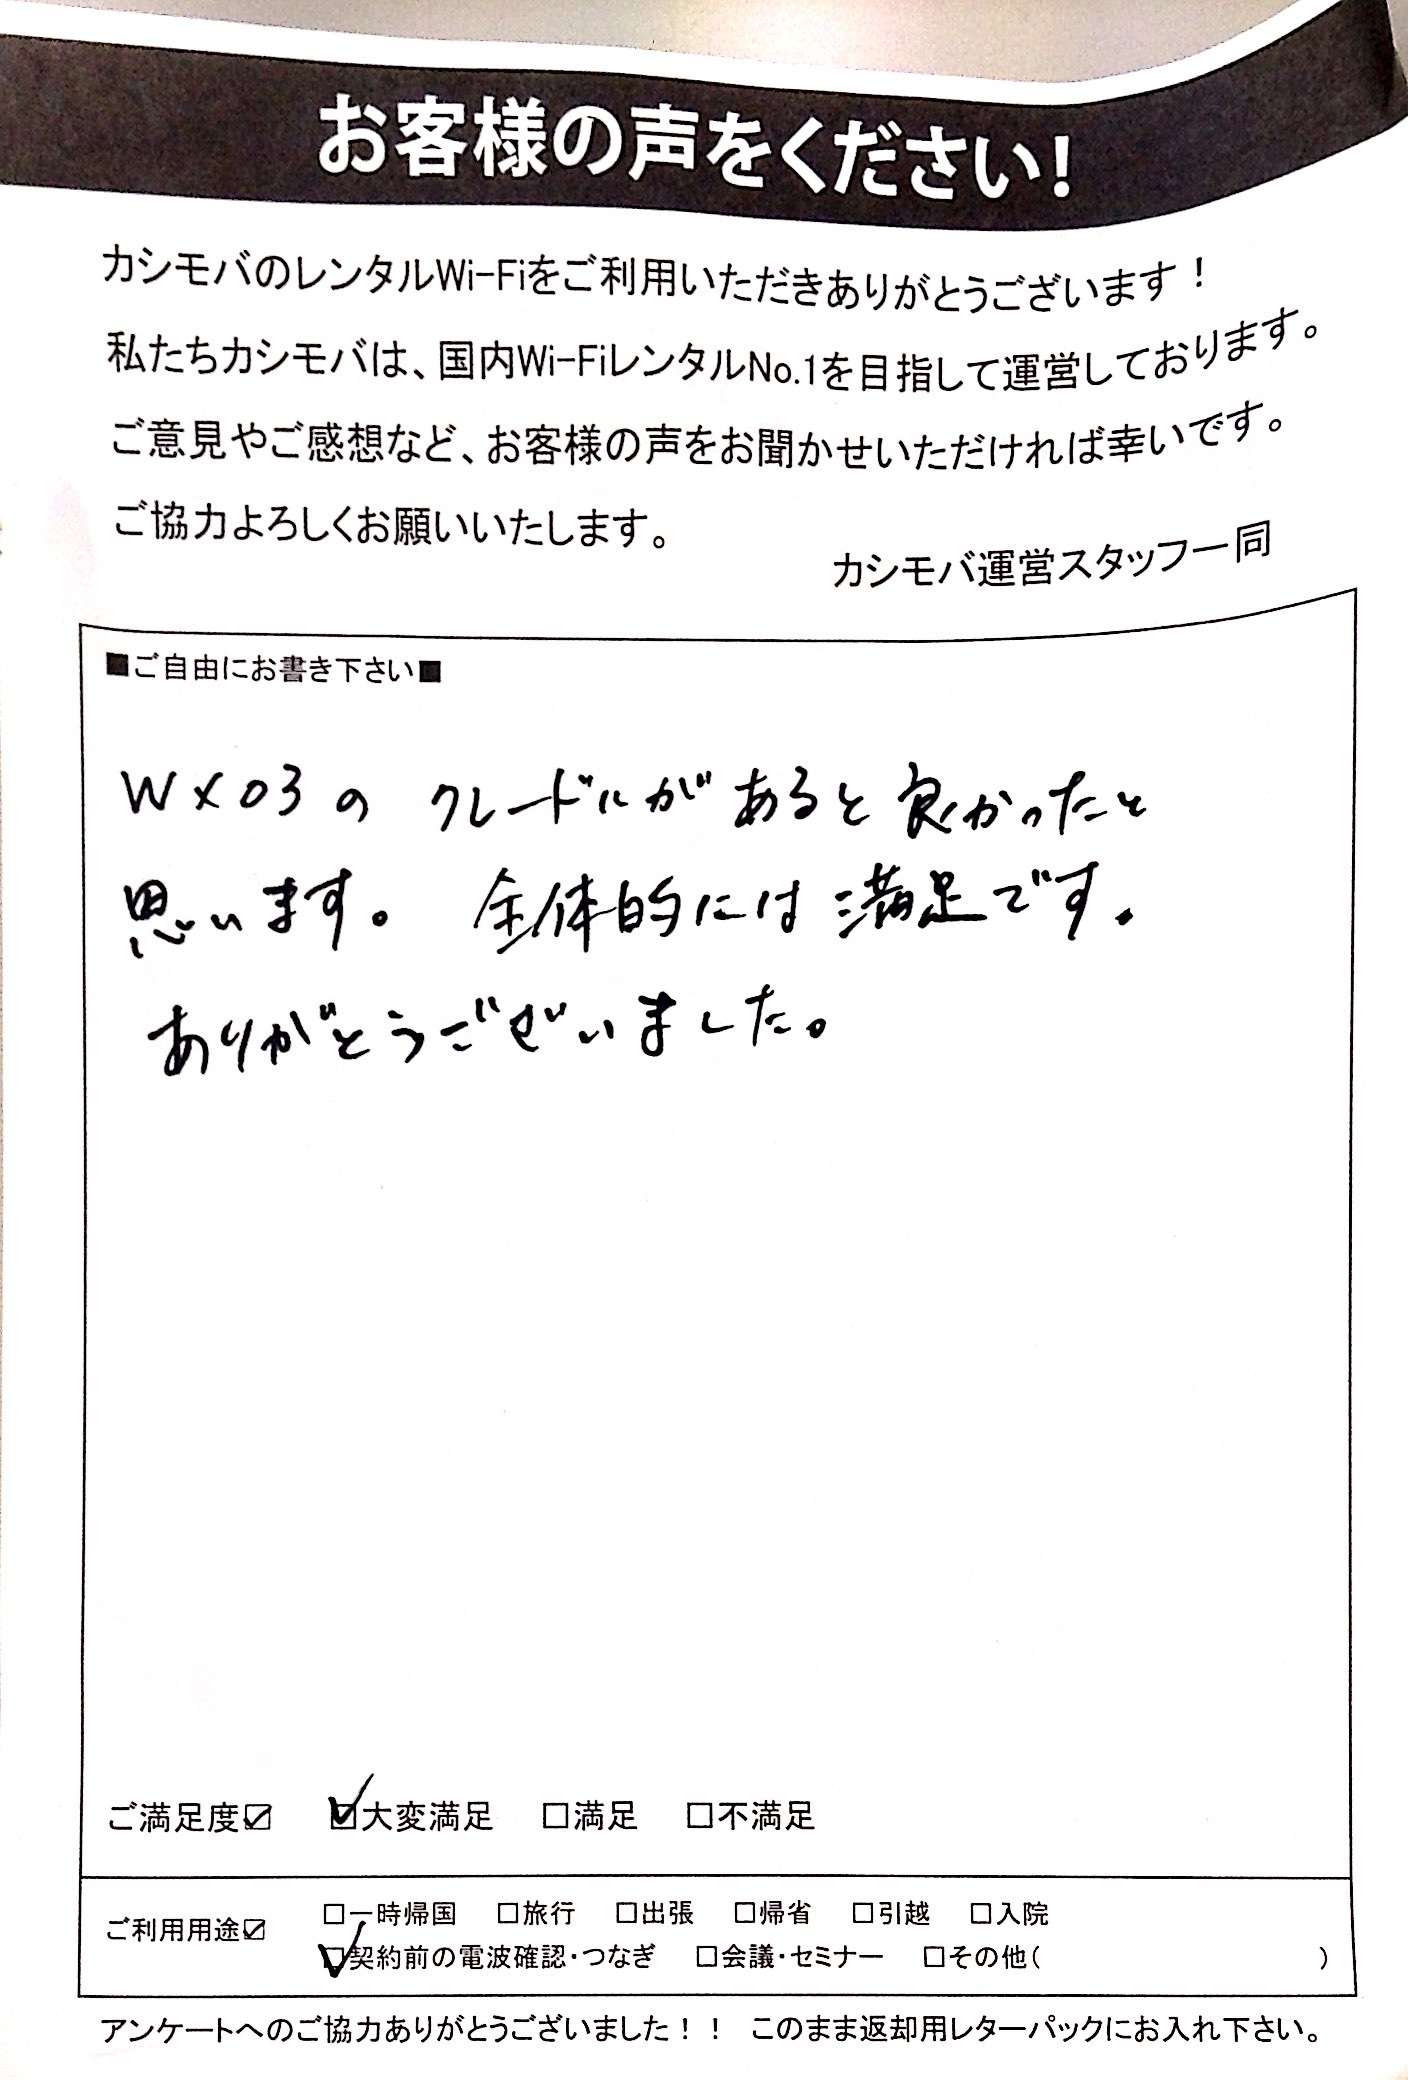 お客様の声をください!
カシモバのレンタルWi-Fiをご利用いただきありがとうございます！
私たちカシモバは、国内Wi-FiレンタルNo.1を目指して運営しております。
ご意見やご感想など、お客様の声をお聞かせいただければ幸いです。
ご協力よろしくお願いいたします。
カシモバ運営スタッフ一同
■ご自由にお書き下さい■
WX03の クレードルがあると良かったと
思います。 全体的には満足です。
ありがとうございました。
ご満足度☑ ☑大変満足 □満足 □不満足
ご利用用途☑ □一時帰国 □旅行 □出張 □帰省 □引越 □入院
☑契約前の電波確認・つなぎ □会議・セミナー □その他( )
アンケートへのご協力ありがとうございました！！ このまま返却用レターパックにお入れ下さい。